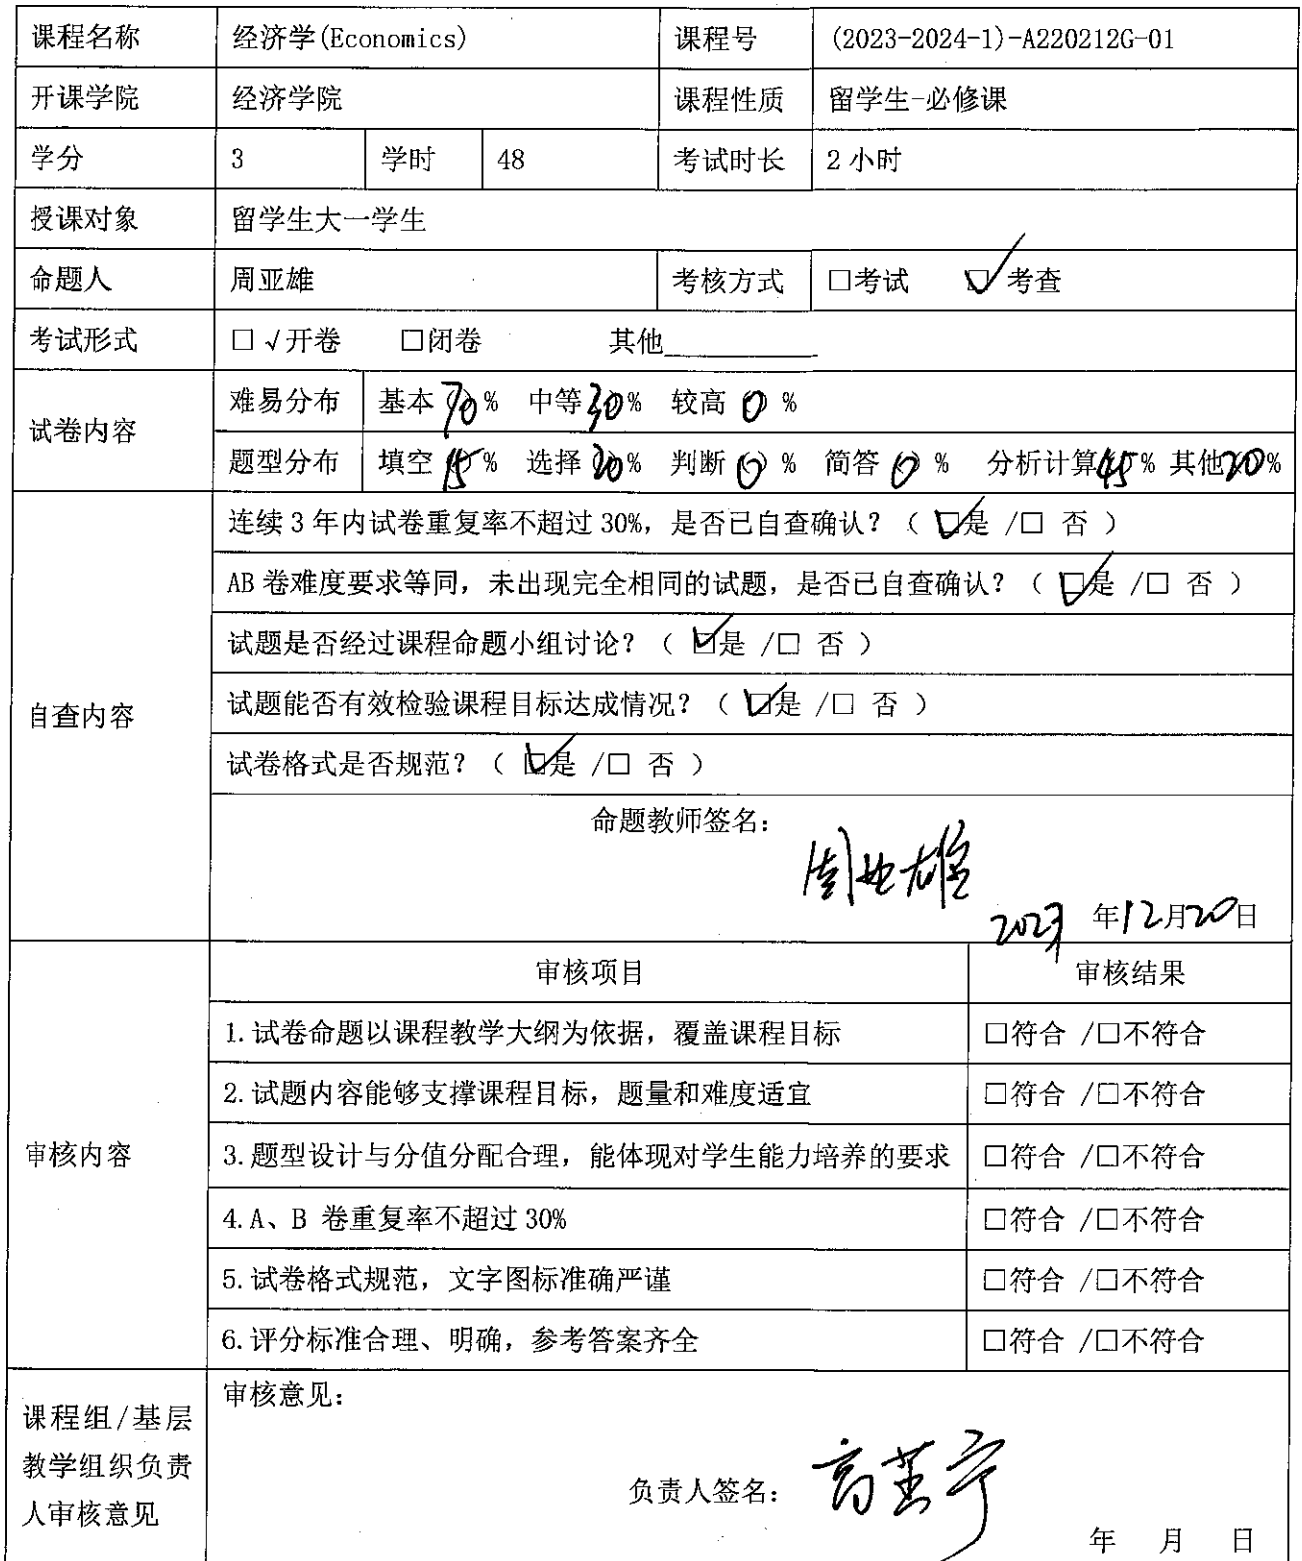 课程名称 经济学(Economics) 课程号 (2023-2024-1)-A220212G-01
开课学院 经济学院 课程性质 留学生-必修课
学分 3 学时 48 考试时长 2小时
授课对象 留学生大一学生
命题人 周亚雄 考核方式 □考试 ☑考查
考试形式 □√开卷 □闭卷 其他__________
试卷内容 难易分布 基本(70)% 中等(30)% 较高(0)%
题型分布 填空(15)% 选择(20)% 判断(0)% 简答(0)% 分析计算(45)% 其他(20)%
自查内容
连续3年内试卷重复率不超过30%，是否已自查确认？（ ☑是 /□ 否 ）
AB卷难度要求等同，未出现完全相同的试题，是否已自查确认？（ ☑是 /□ 否 ）
试题是否经过课程命题小组讨论？（ ☑是 /□ 否 ）
试题能否有效检验课程目标达成情况？（ ☑是 /□ 否 ）
试卷格式是否规范？（ ☑是 /□ 否 ）
命题教师签名：
周亚雄
2023年12月20日
审核内容
审核项目 审核结果
1.试卷命题以课程教学大纲为依据，覆盖课程目标 □符合 /□不符合
2.试题内容能够支撑课程目标，题量和难度适宜 □符合 /□不符合
3.题型设计与分值分配合理，能体现对学生能力培养的要求 □符合 /□不符合
4.A、B 卷重复率不超过30% □符合 /□不符合
5.试卷格式规范，文字图标准确严谨 □符合 /□不符合
6.评分标准合理、明确，参考答案齐全 □符合 /□不符合
课程组/基层
教学组织负责
人审核意见
审核意见：
负责人签名：
年 月 日